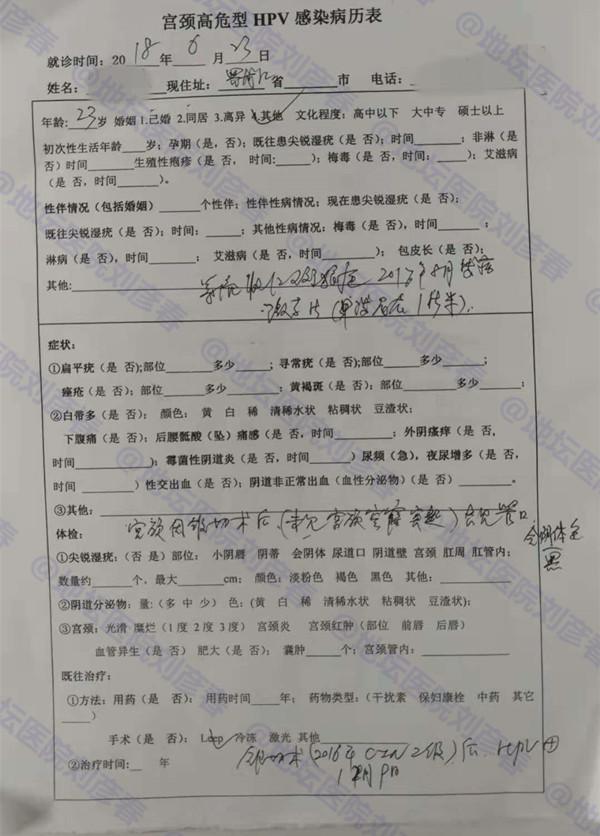 宫颈高危型 HPV 感染病历表
就诊时间：2018年6月23日
姓名： 现住址：黑龙江省 市 电话：
年龄：23岁 婚姻 1.已婚 2.同居 3.离异 4.其他 文化程度：高中以下 大中专 硕士以上
初次性生活年龄____岁；孕期（是，否）；既往患尖锐湿疣（是 否）；时间______；非淋（是
否）时间______生殖性疱疹（是 否， 时间:_____）；梅毒（是 否，时间：_____）；艾滋病
（是 否，时间______）。
性伴情况（包括婚姻）______个性伴；性伴性病情况；现在患尖锐湿疣（是 否）；
既往尖锐湿疣（是 否）；时间：_____；其他性病情况：梅毒（是 否），时间______；
淋病（是 否），时间______； 艾滋病（是 否，时间________）； 包皮长（是 否）；
其他： 2017年8月
症状：
①扁平疣（是 否）；部位_______多少_____；寻常疣（是 否）;部位_______多少_____；
痤疮（是 否）；部位_______多少_______； 黄褐斑（是 否）：部位_______多少______；
②白带多（是 否）： 颜色： 黄 白 稀 清稀水状 粘稠状 豆渣状；
下腹痛（是 否）；后腰骶酸（坠）痛感（是 否，时间________； 外阴瘙痒（是 否，
时间__________）；霉菌性阴道炎（是 否，时间________）尿频（急），夜尿增多（是 否，
时间 ________）性交出血（是 否）；阴道非正常出血（血性分泌物）（是 否）________。
③其他： 宫颈 术后
体检： 会阴体色
黑
①尖锐湿疣：（否 是）部位： 小阴唇 阴蒂 会阴体 尿道口 阴道壁 宫颈 肛周 肛管内；
数量约______个，最大________cm； 颜色：淡粉色 褐色 黑色 其他：__________
②阴道分泌物：量：（多 中 少） 色：（黄 白 稀 清稀水状 粘稠状 豆渣状）；
③宫颈：光滑 糜烂（1度 2度 3度） 宫颈炎 宫颈红肿（部位 前唇 后唇）
血管异生（是 否） 肥大（是 否）； 囊肿_____个；宫颈管内：__________
既往治疗：
①方法：用药（是 否）： 用药时间____年； 药物类型：（干扰素 保妇康栓 中药 其它
_____）
手术（是 否）： Leep 冷冻 激光 其他
②治疗时间:__ 年 术（2016年 CIN 2级）后 HPV ⊕
@地坛医院刘彦春